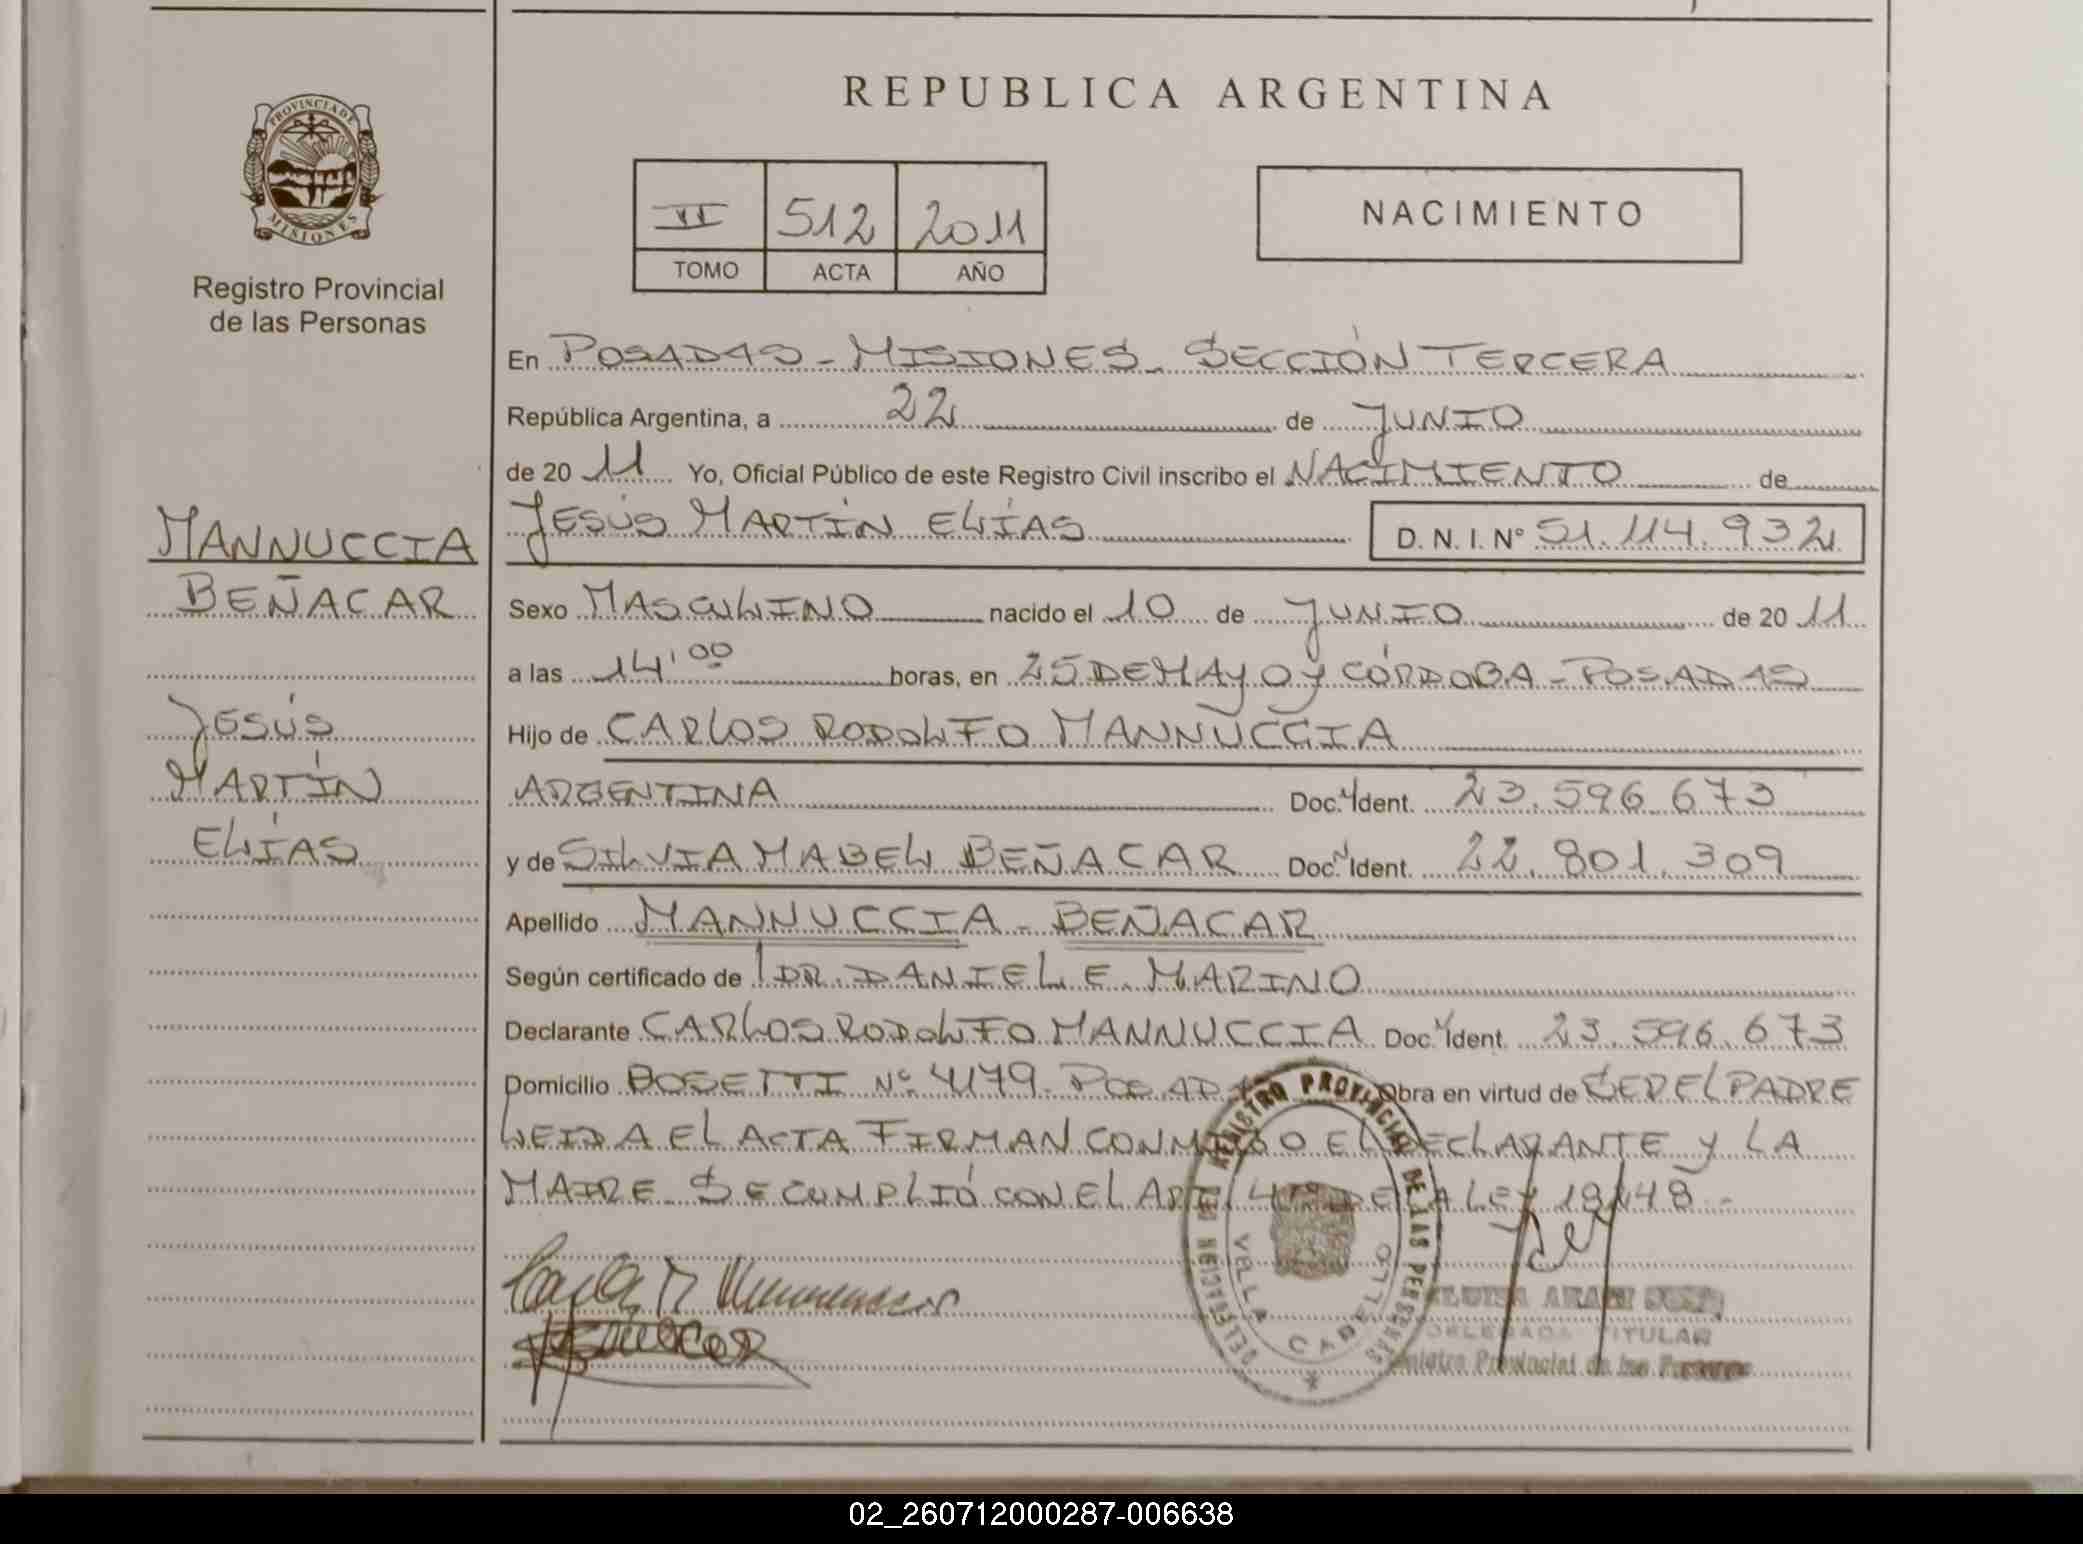 REPUBLICA ARGENTINA
PROVINCIA DE
MISIONES
Registro Provincial
de las Personas
II 512 2011
TOMO ACTA AÑO
NACIMIENTO
En POSADAS - MISIONES - SECCIÓN TERCERA
República Argentina, a 22 de JUNIO
de 20 11 Yo, Oficial Público de este Registro Civil inscribo el NACIMIENTO de
JESÚS MARTÍN ELÍAS D. N. I. Nº 51.114.932
MANNUCCIA
BEÑACAR
JESÚS
MARTÍN
ELÍAS
Sexo MASCULINO nacido el 10 de JUNIO de 20 11
a las 14'00 horas, en 25 DE MAYO y CÓRDOBA - POSADAS
Hijo de CARLOS RODOLFO MANNUCCIA
ARGENTINA Doc. Ident. 23.596.673
y de SILVIA MABEL BEÑACAR Doc. Ident. 22.801.309
Apellido MANNUCCIA - BEÑACAR
Según certificado de DR. DANIEL E. MARINO
Declarante CARLOS RODOLFO MANNUCCIA Doc. Ident. 23.596.673
Domicilio BOSETTI Nº 4179 - POSADAS Obra en virtud de SER EL PADRE
LEIDA EL ACTA FIRMAN CONMIGO EL DECLARANTE y LA
MADRE - SE CUMPLIÓ CON EL ART. DE LA LEY 18248 -
REGISTRO PROVINCIAL DE LAS PERSONAS
VILLA CABELLO
DELEGADA TITULAR
Registro Provincial de las Personas
02_260712000287-006638